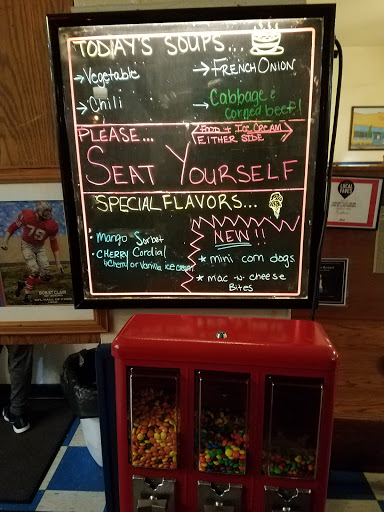 TODAY'S SOUPS...
→Vegetable
→FRENCH ONION
→Chili
→Cabbage & corned beef!
PLEASE...
FOOD + ICE CREAM
EITHER SIDE
SEAT YOURSELF
SPECIAL FLAVORS...
NEW!!
• Mango Sorbet
• CHERRY Cordial
* mini corn dogs
* mac-n-cheese
Bites
79
LOCAL FAVES